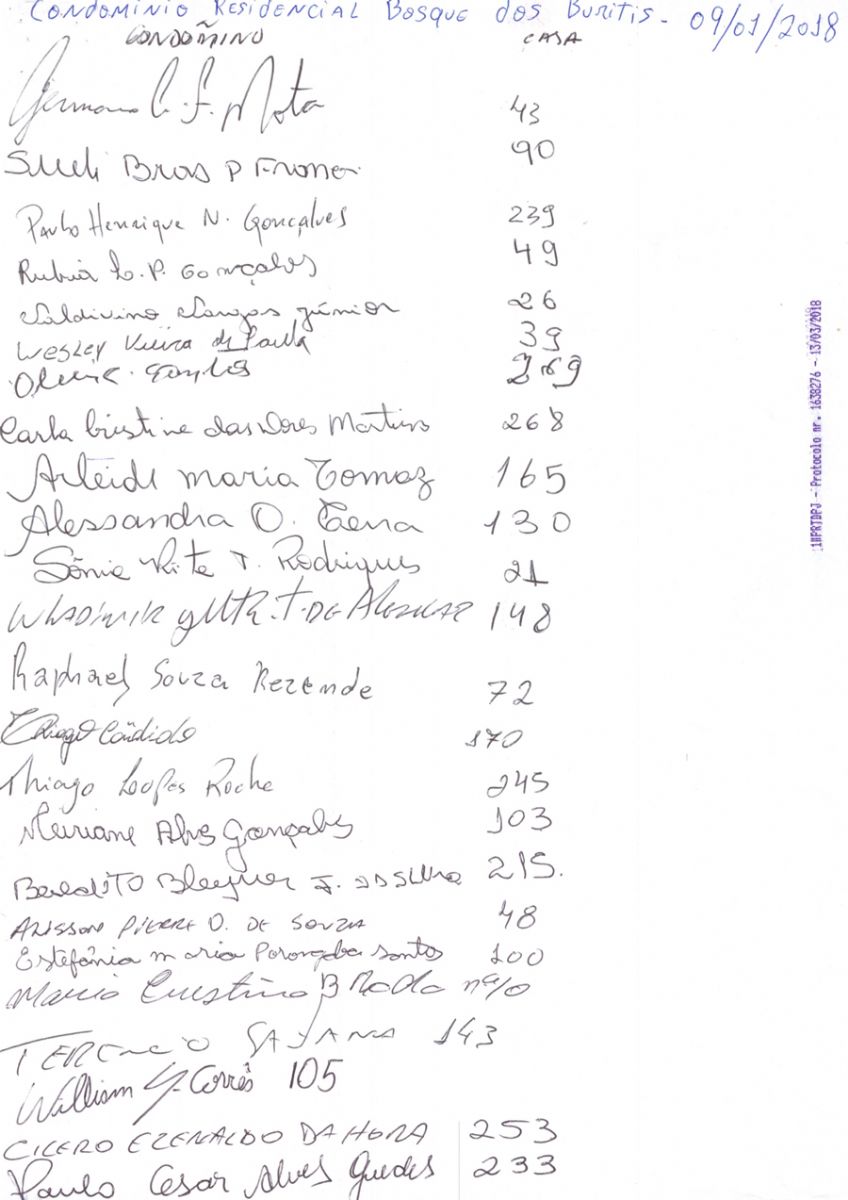 CONDOMINIO RESIDENCIAL BOSQUE DOS BURITIS - 09/01/2018
CONDOMINO CASA
Germano C. F. Mota 43
Sueli Bras P 90
Paulo Henrique N. Gonçalves 239
Rubia L. P. Gonçalves 49
Júnior 26
Wesley Vieira de Paula 39
269
Carla Cristine das Dores Martins 268
Arleide Maria Tomaz 165
Alessandra O. 130
Sônia Rita T. Rodrigues 21
DE 148
Raphael Souza Rezende 72
Thiago Cândido 170
Thiago Lopes Rocha 245
Meiriane Alves Gonçalves 103
Benedito J. DA SILVA 215.
ALISSON PIERRE D. DE SOUZA 48
Estefânia Maria Santos 100
Maria nº10
143
William Corrês 105
CICERO EZENALDO DA HORA 253
Paulo Cesar Alves Guedes 233
1ºPRTDPJ - Protocolo nr. 1638276 - 13/03/2018